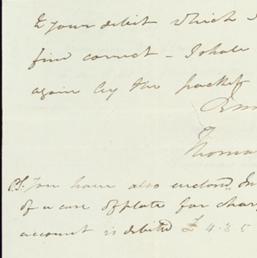 to your debit which I
find correct – I shall
again by the packet
Thoma
P.S. You have also enclosed In
of a case of plate for char
account is debited £ 4.8.5